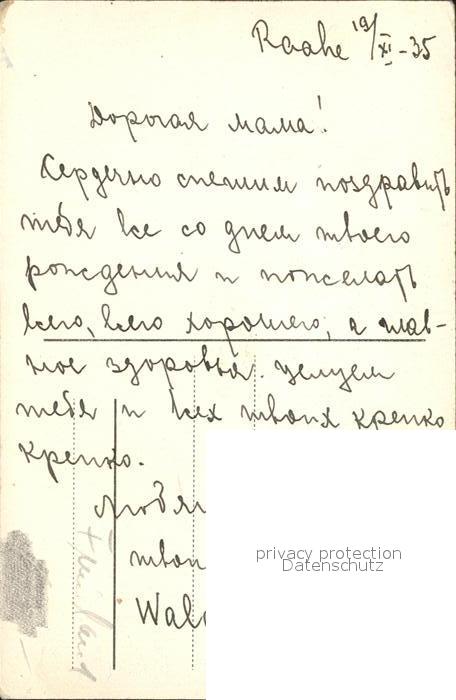 Raahe 19/XI-35
Дорогая мама!
Сердечно спешим поздравить
тебя все со днем твоего
рождения и пожелать
всего, всего хорошего, а глав-
ное здоровья. Целуем
тебя и всех твоих крепко
крепко.
privacy protection
Datenschutz